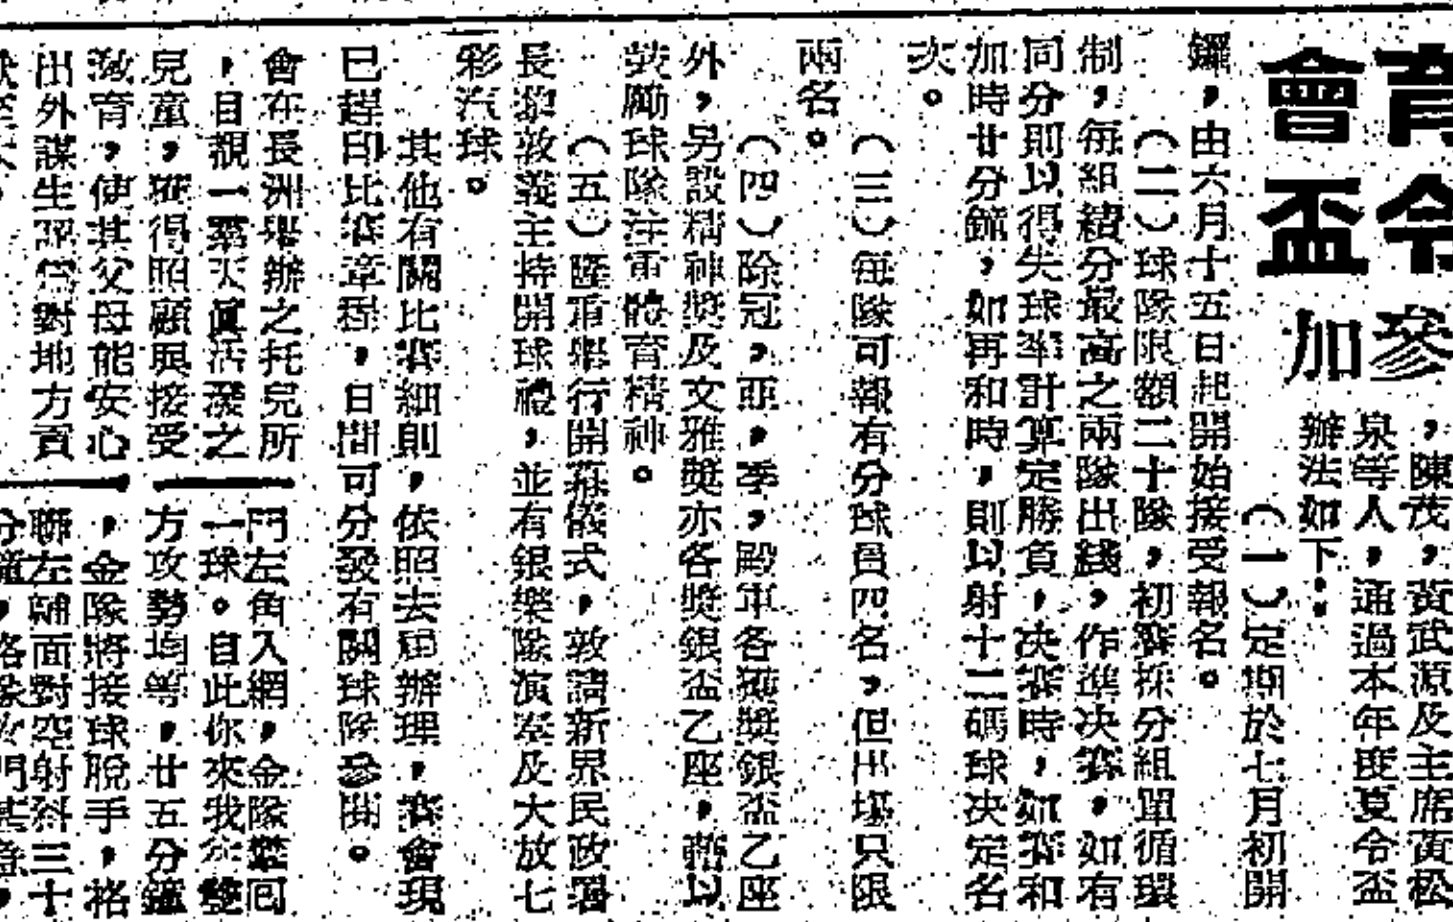 育令參
會盃加
，陳茂，黃武源及主席黃松
泉等人，通過本年度夏令盃
辦法如下：
（一）定期於七月初開
鑼，由六月十五日起開始接受報名。
（二）球隊限額二十隊，初賽採分組單循環
制，每組績分最高之兩隊出綫，作準決賽，如有
同分則以得失球率計算定勝負，決賽時，如賽和
加時廿分鐘，如再和時，則以射十二碼球決定名
次。
（三）每隊可報有分球員四名，但出場只限
兩名。
（四）除冠，亞，季，殿軍各獲獎銀盃乙座
外，另設精神獎及文雅獎亦各獎銀盃乙座，藉以
獎勵球隊注重體育精神。
（五）隆重舉行開幕儀式，敦請新界民政署
長黎敦義主持開球禮，並有銀樂隊演奏及大放七
彩汽球。
其他有關比賽細則，依照去屆辦理，賽會現
已趕印比賽章程，日間可分發有關球隊參閱。
會在長洲舉辦之托兒所
，目覩一羣天眞活潑之
兒童，獲得照顧與接受
敎育，使其父母能安心
出外謀生，認爲對地方貢
門左角入網，金隊扳回
一球。自此你來我往雙
方攻勢均等，廿五分鐘
，金隊將接球脫手，格
聯左輔面對空射斜三十